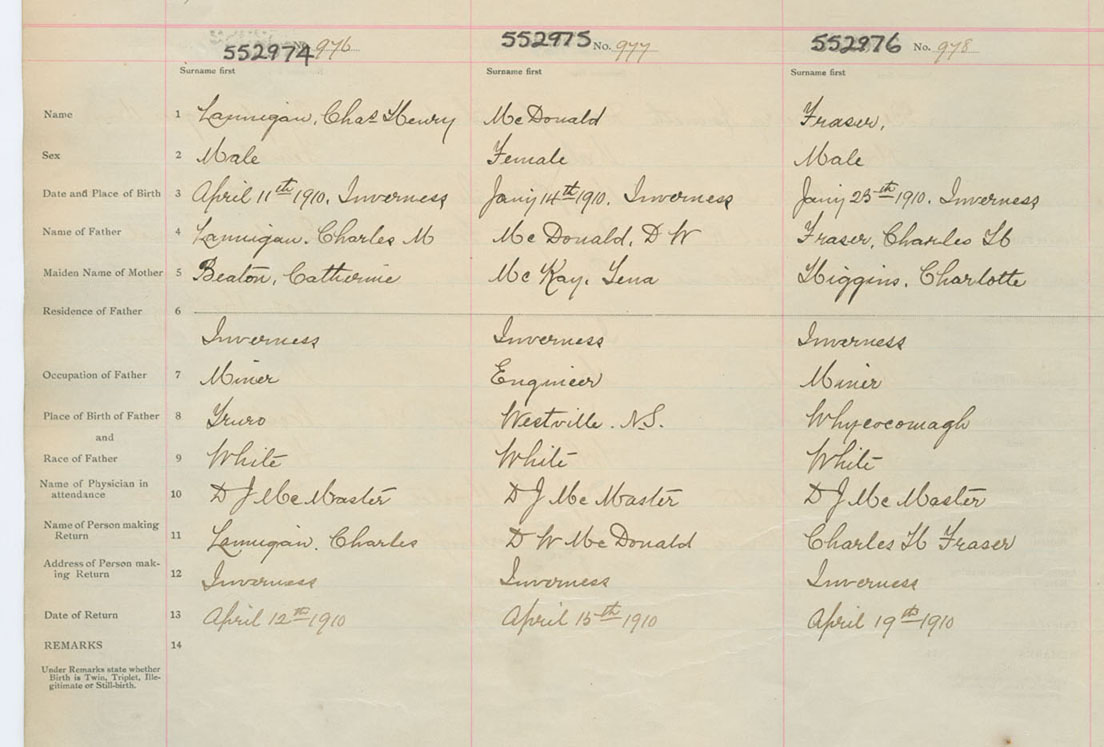 552974 No. 976 552975 No. 977 552976 No. 978
Surname first Surname first Surname first
Name 1 Lannigan, Chas Henry McDonald Fraser,
Sex 2 Male Female Male
Date and Place of Birth 3 April 11th 1910. Inverness Jany 14th 1910. Inverness Jany 25th 1910. Inverness
Name of Father 4 Lannigan. Charles M McDonald, D W Fraser, Charles H
Maiden Name of Mother 5 Beaton, Catherine McKay, Lena Higgins, Charlotte
Residence of Father 6
Inverness Inverness Inverness
Occupation of Father 7 Miner Engineer Miner
Place of Birth of Father 8 Truro Westville. N.S. Whycocomagh
and
Race of Father 9 White White White
Name of Physician in
attendance 10 D J McMaster D J McMaster D J McMaster
Name of Person making
Return 11 Lannigan. Charles D W McDonald Charles H Fraser
Address of Person mak-
ing Return 12 Inverness Inverness Inverness
Date of Return 13 April 12th 1910 April 15th 1910 April 19th 1910
REMARKS 14
Under Remarks state whether
Birth is Twin, Triplet, Ille-
gitimate or Still-birth.